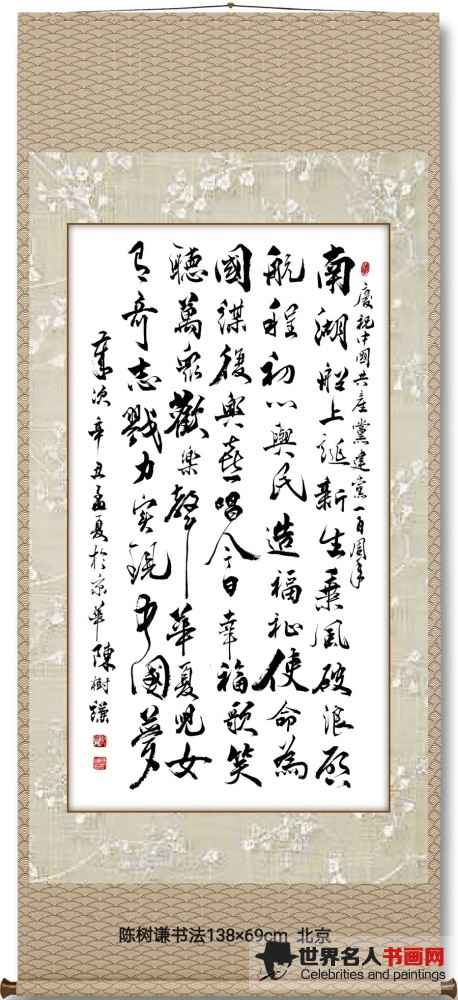 慶祝中國共産黨建黨一百周年
南湖船上誕新生乘風破浪啟
航程初心與民造福祉使命為
國謀復興喜唱今日幸福歌笑
聽萬眾歡樂聲華夏兒女
有奇志戮力實現中國夢
歲次辛丑孟夏於京華陳樹謙
陈树谦书法138×69cm 北京
世界名人书画网
Celebrities and paintings